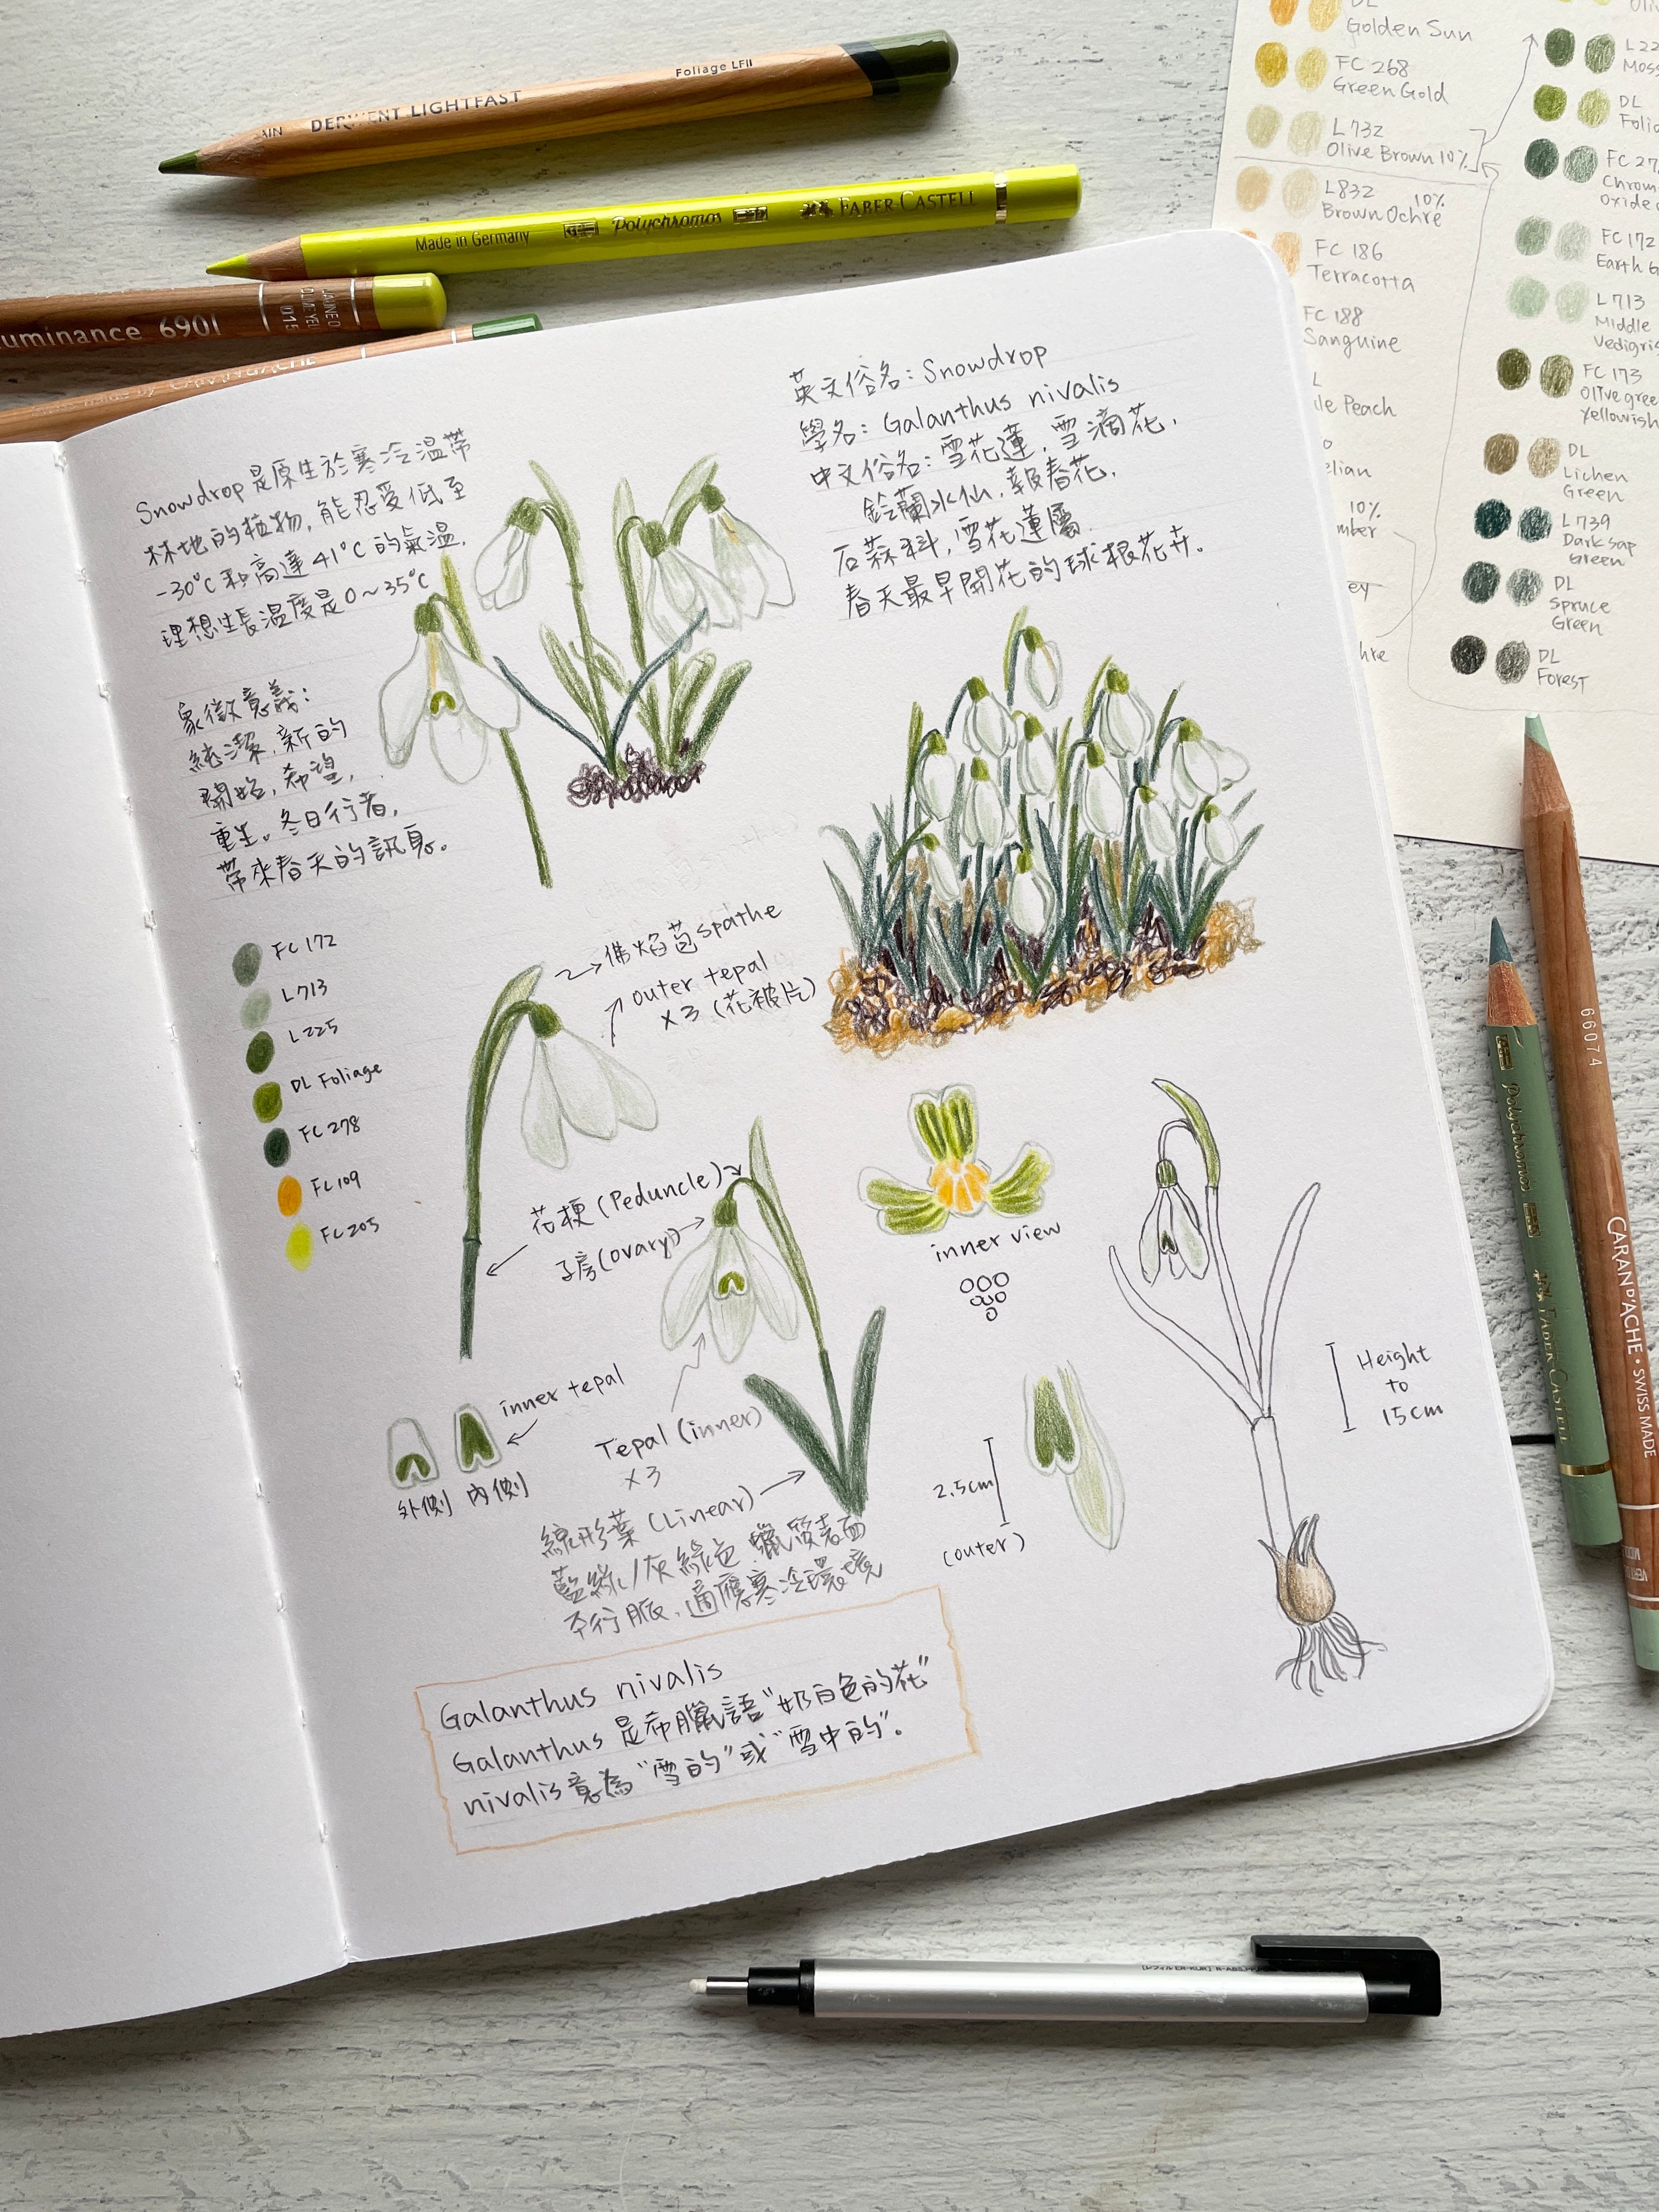 Foliage LFII
DERWENT LIGHTFAST
Made in Germany
Polychromos
FABER-CASTELL
uminance 6901
CARAN D'ACHE
DL
Golden Sun
FC 268
Green Gold
L732
Olive Brown 10%
L832 10%
Brown Ochre
FC 186
Terracotta
FC 188
Sanguine
Peach
10%
L22
Moss
DL
Folia
FC 27
Chrom
Oxide
FC172
Earth G
L713
Middle
Vedigris
FC 173
Olive gree
yellowish
DL
Lichen
Green
L739
Dark sap
Green
DL
Spruce
Green
DL
Forest
Snowdrop是原生於寒冷溫帶
林地的植物,能忍受低至
-30°C和高達41°C的氣溫.
理想生長溫度是0~35°C
象徵意義:
純潔,新的
開始,希望,
重生。冬日行者,
帶來春天的訊息。
英文俗名:Snowdrop
學名:Galanthus nivalis
中文俗名:雪花蓮,雪滴花,
鈴蘭水仙,報春花,
石蒜科,雪花蓮屬.
春天最早開花的球根花卉。
FC172
L713
L225
DL Foliage
FC 278
FC109
FC205
佛焰苞spathe
outer tepal
x3 (花被片)
花梗(Peduncle)
子房(ovary)
inner view
inner tepal
外側 內側
Tepal (inner)
x3
線形葉(Linear)
藍綠/灰綠色 蠟質表面
平行脈,適應寒冷環境
2.5cm
(outer)
Height
to
15cm
Galanthus nivalis
Galanthus 是希臘語"奶白色的花"
nivalis意為"雪的"或"雪中的"。
Polychromos
FABER-CASTELL
66074
CARAN D'ACHE • SWISS MADE